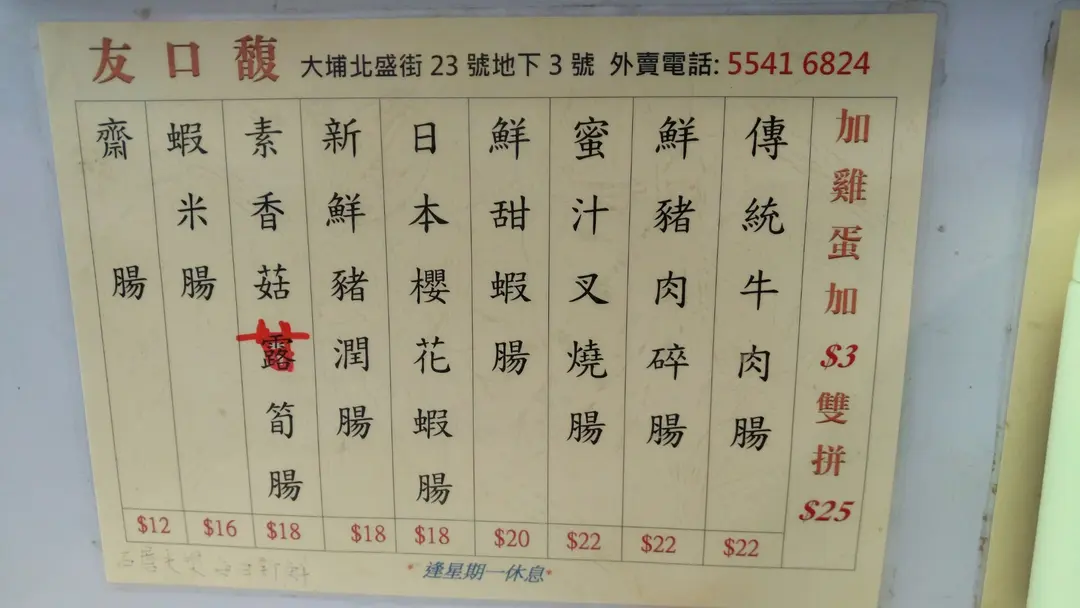 友口馥 大埔北盛街 23 號地下 3 號 外賣電話: 5541 6824
加雞蛋加 $3 雙拼 $25
傳統牛肉腸 $22
鮮豬肉碎腸 $22
蜜汁叉燒腸 $22
鮮甜蝦腸 $20
日本櫻花蝦腸 $18
新鮮豬潤腸 $18
素香菇露筍腸 $18
蝦米腸 $16
齋腸 $12
*逢星期一休息*